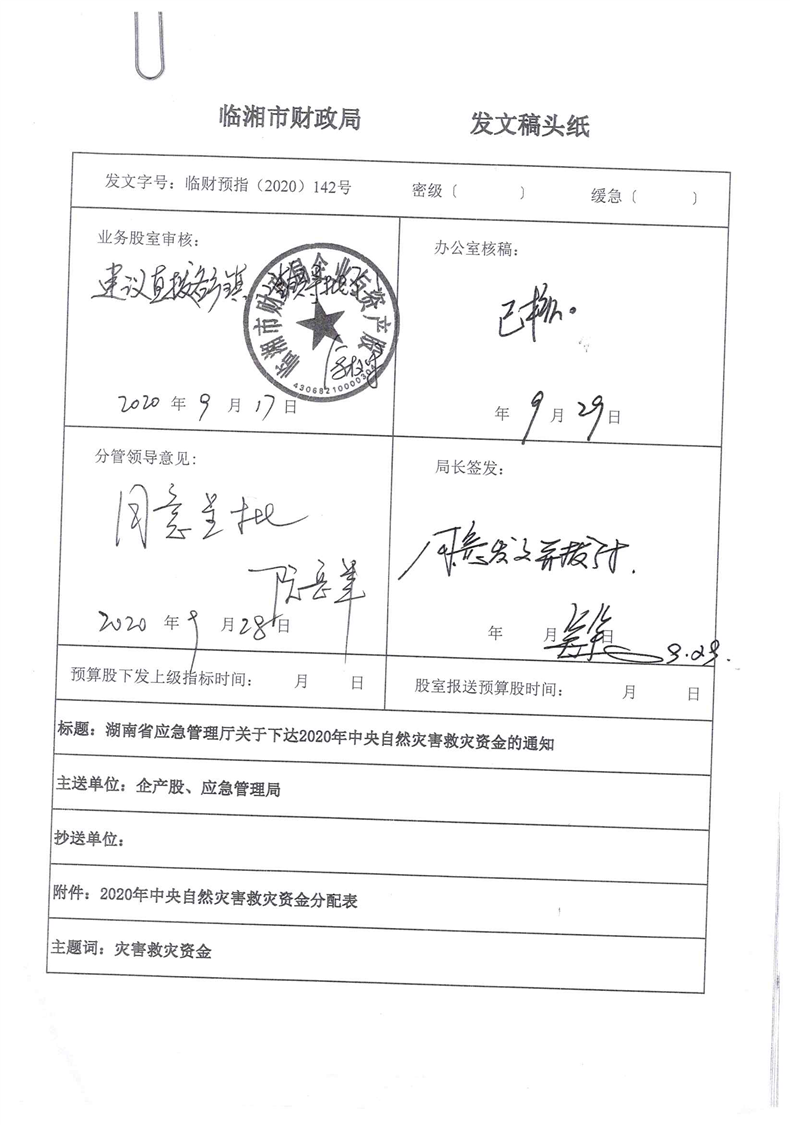 临湘市财政局 发文稿头纸
发文字号：临财预指（2020）142号 密级〔 〕 缓急〔 〕
业务股室审核：
建议直拨各乡镇
临湘市财政局企业与资产股
2020 年 9 月 17 日
办公室核稿：
已核。
年 9 月 29 日
分管领导意见：
同意呈批
2020 年 9 月 28 日
局长签发：
同意发文并拨付.
年 月 日
预算股下发上级指标时间： 月 日
股室报送预算股时间： 月 日
标题：湖南省应急管理厅关于下达2020年中央自然灾害救灾资金的通知
主送单位：企产股、应急管理局
抄送单位：
附件：2020年中央自然灾害救灾资金分配表
主题词：灾害救灾资金